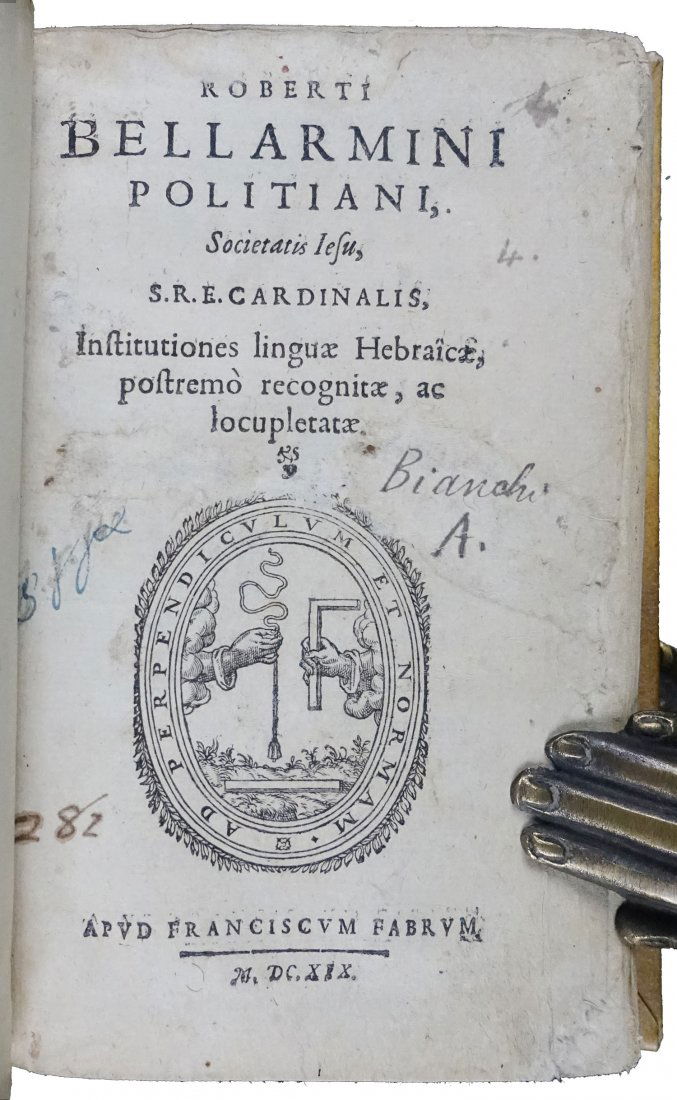 ROBERTI
BELLARMINI
POLITIANI,.
Societatis Ieſu,
S.R.E. CARDINALIS,
Inſtitutiones linguæ Hebraîcæ,
poſtremò recognitæ, ac
locupletatæ.
4.
4.
Bianchi
A.
AD PERPENDICVLVM ET NORMAM
282
APVD FRANCISCVM FABRVM,
M. DC. XIX.